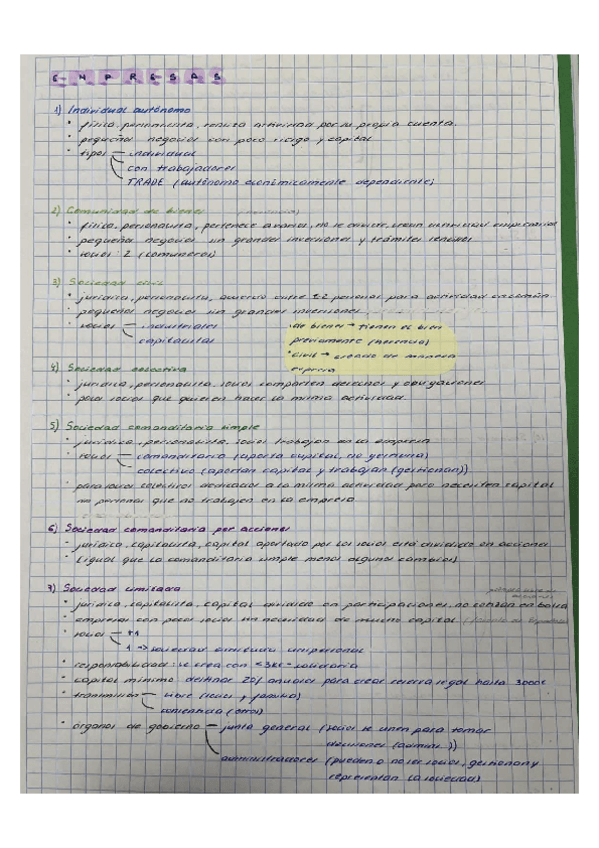 EMPRESAS
1) Individual autónomo
• física, personalista, realiza actividad por su propia cuenta.
• pequeños negocios con poco riesgo y capital
• tipos — individual
con trabajadores
TRADE (autónomo económicamente dependiente)
2) Comunidad de bienes
• física, personalista, pertenece a varios, no se
• pequeños negocios sin grandes inversiones y trámites
• socios: 2 (comuneros)
3) Sociedad civil
• jurídica, personalista, acuerdo entre ±2 personas para actividad en común
• pequeños negocios sin grandes inversiones
• socios — industriales
capitalistas
• de bienes → tienen el bien
previamente (herencia)
• civil → creado de manera
expresa
4) Sociedad colectiva
• jurídica, personalista, socios comparten derechos y obligaciones
• para socios que quieren hacer la misma actividad
5) Sociedad comanditaria simple
• jurídica, personalista, socios trabajan en la empresa
• socios — comanditario (aporta capital, no gestiona)
colectivo (aportan capital y trabajan (gestionan))
• para socios colectivos dedicados a la misma actividad pero necesitan capital
de personas que no trabajen en la empresa
6) Sociedad comanditaria por acciones
• jurídica, capitalista, capital aportado por los socios está dividido en acciones
(igual que la comanditaria simple menos algunos cambios)
7) Sociedad limitada
• jurídica, capitalista, capital dividido en participaciones, no cotizan en bolsa
• empresas con pocos socios sin necesidad de mucho capital
• socios — +1
1 → sociedad limitada unipersonal
• responsabilidad: se crea con <3k€ = solidaria
• capital mínimo destinar 20% anuales para crear reserva legal hasta 3000€
• transmisión — libre (socios y familia)
consentida (otros)
• órganos de gobierno — junta general (socios se unen para tomar
decisiones (admin.))
administradores (pueden o no ser socios, gestionan y
representan la sociedad)